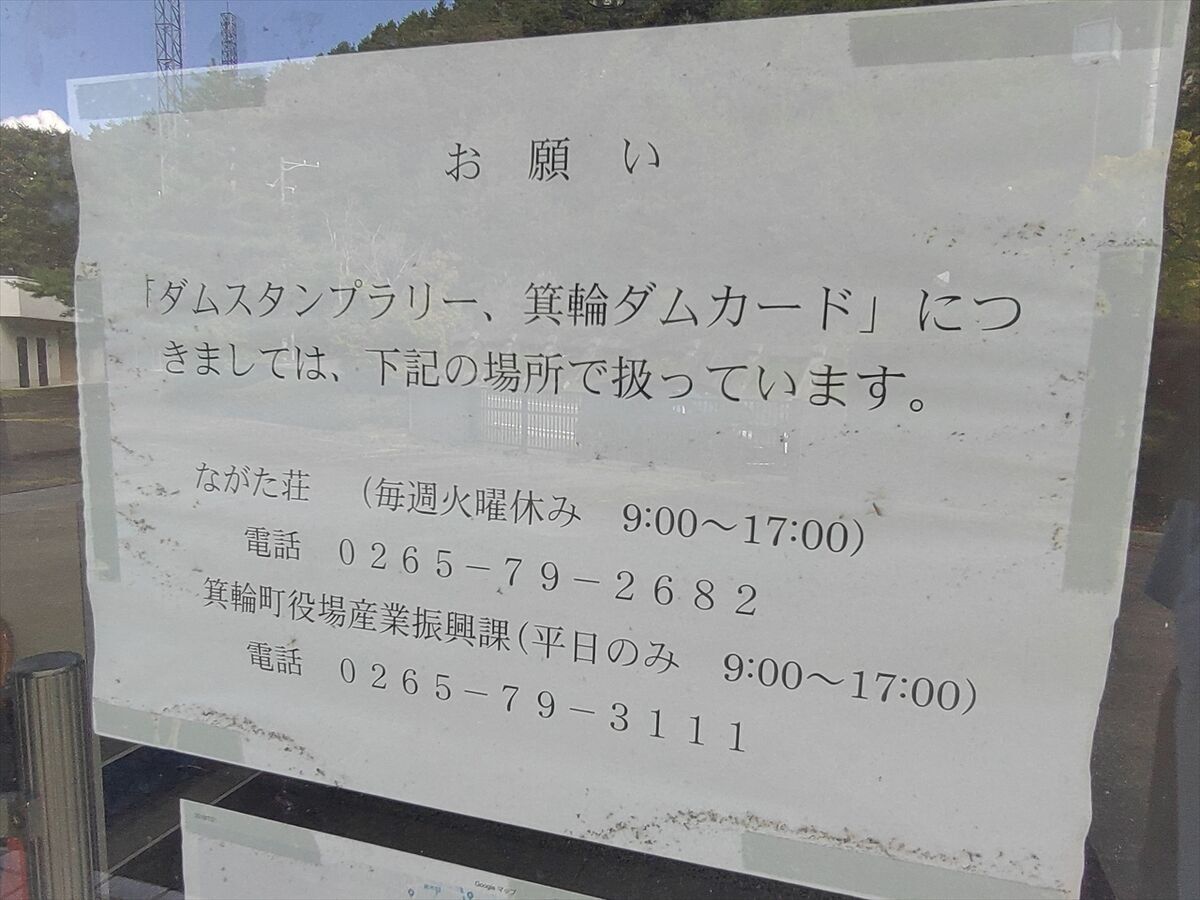 お　願　い
「ダムスタンプラリー、箕輪ダムカード」につ
きましては、下記の場所で扱っています。
ながた荘　（毎週火曜休み　9:00～17:00）
電話　０２６５－７９－２６８２
箕輪町役場産業振興課（平日のみ　9:00～17:00）
電話　０２６５－７９－３１１１
Google マップ